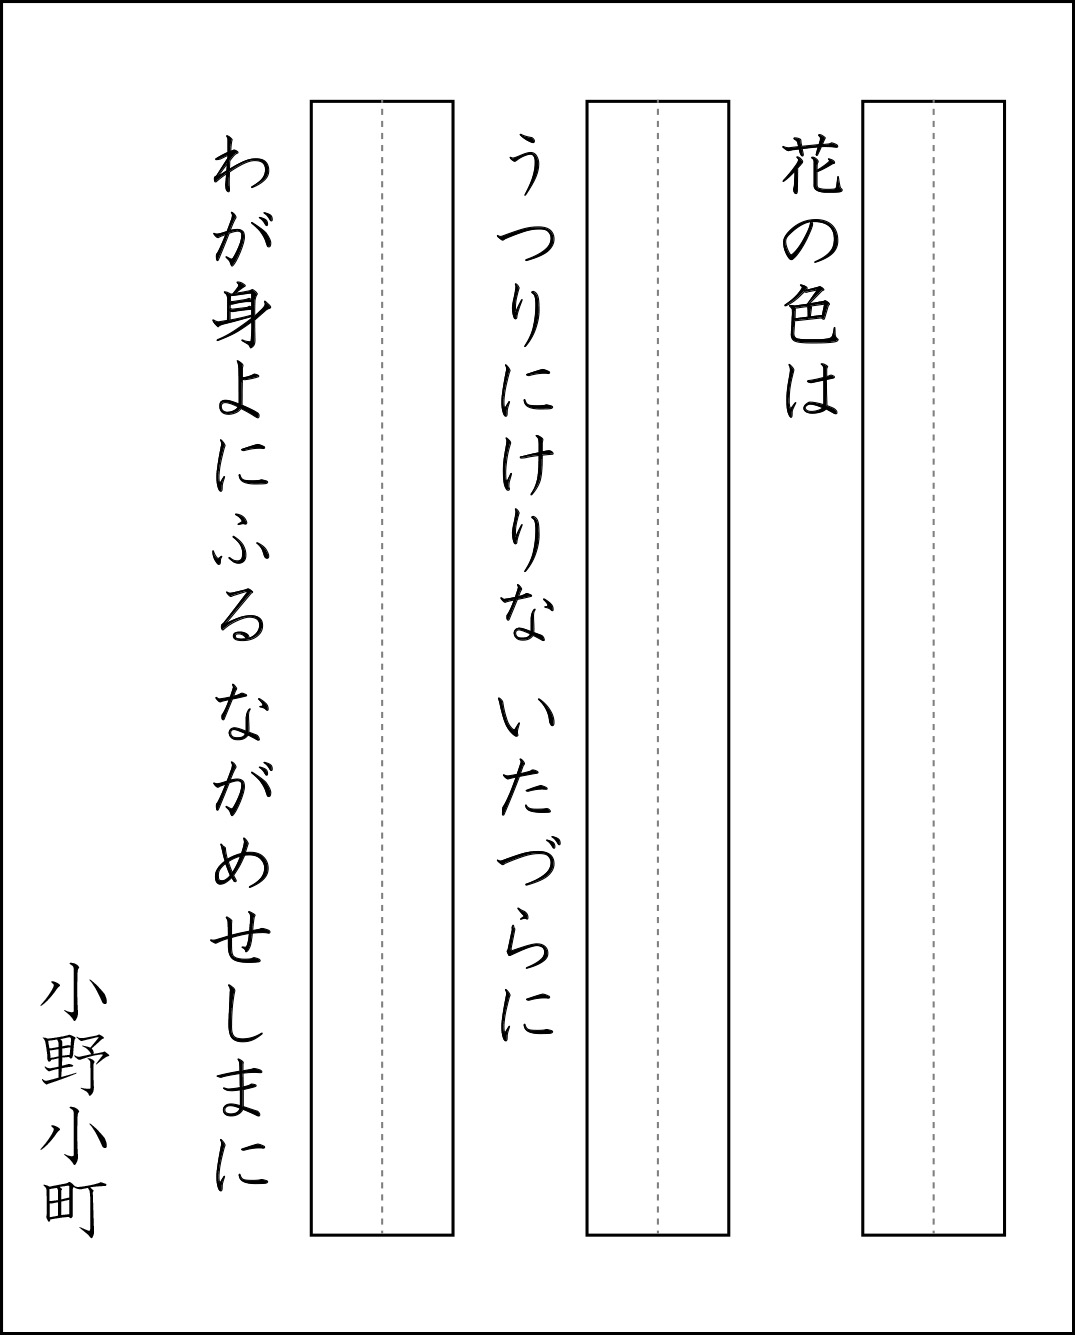 花の色は
うつりにけりな いたづらに
わが身よにふる ながめせしまに
小野小町